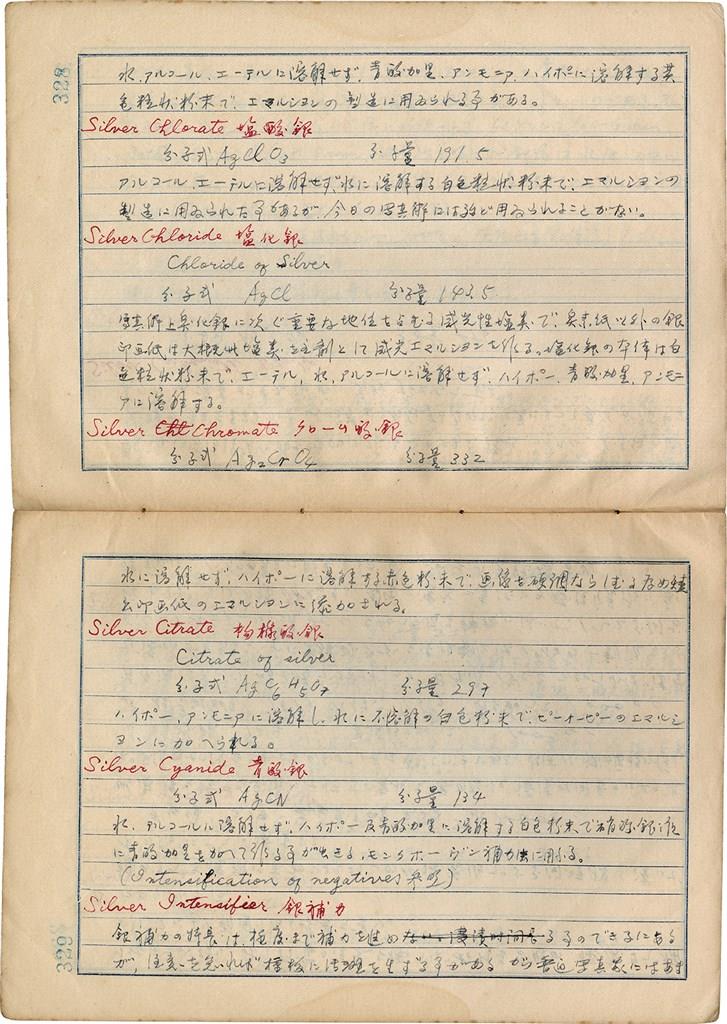 328
水、アルコール、エーテルに溶解せず、青酸加里、アンモニア、ハイポに溶解する黄
色粒状粉末で、エマルションの製造に用ゐられる事がある。
Silver Chlorate 塩酸銀
分子式 AgClO3 分子量 191.5
アルコール、エーテルに溶解せず、水に溶解する白色粒状粉末で、エマルションの
製造に用ゐられた事があるが、今日の写真術には殆ど用ゐられることがない。
Silver Chloride 塩化銀
Chloride of Silver
分子式 AgCl 分子量 143.5
写真術上臭化銀に次ぐ重要な地位を占むる感光性塩類で、臭素紙以外の銀
印画紙は大概此塩類を主剤として感光エマルションを作る。塩化銀の本体は白
色粒状粉末で、エーテル、水、アルコールに溶解せず、ハイポー、青酸加里、アンモニ
アに溶解する。
Silver Chromate クローム酸銀
分子式 Ag2CrO4 分子量 332
水に溶解せず、ハイポーに溶解する赤色粉末で、画像を硬調ならしむる為め
印画紙のエマルションに添加される。
Silver Citrate 枸櫞酸銀
Citrate of silver
分子式 AgC6H5O7 分子量 297
ハイポー、アンモニアに溶解し、水に不溶解の白色粉末で、ピーオーピーのエマルシ
ヨンに加へられる。
Silver Cyanide 青酸銀
分子式 AgCN 分子量 134
水、アルコールに溶解せず、ハイポー及青酸加里に溶解する白色粉末で硝酸銀液
に青酸加里を加へて作る事が出来る、モンクホーヴン補力法に用ふる。
(Intensification of negatives 参照)
Silver Intensifier 銀補力
銀補力の特長は、極度まで補力を進め る事のできるにある
が、注意を怠れば種板に を生ずる事がある から普通写真家にはあま
329